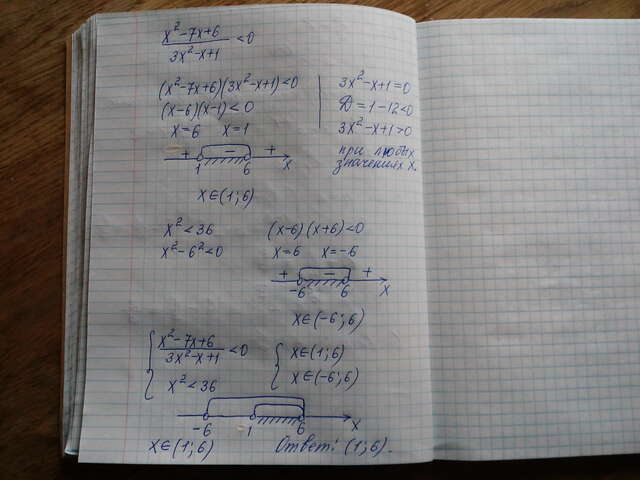 x²-7x+6 / 3x²-x+1 < 0
(x²-7x+6)(3x²-x+1)<0
(x-6)(x-1)<0
x=6 x=1
+ - +
1 6 x
x∈(1;6)
3x²-x+1=0
D=1-12<0
3x²-x+1>0
при любых
значениях x.
x²<36
x²-6²<0
(x-6)(x+6)<0
x=6 x=-6
+ - +
-6 6 x
x∈(-6;6)
{ x²-7x+6 / 3x²-x+1 < 0
x²<36
{ x∈(1;6)
x∈(-6;6)
-6 1 6 x
x∈(1;6) Ответ: (1;6).